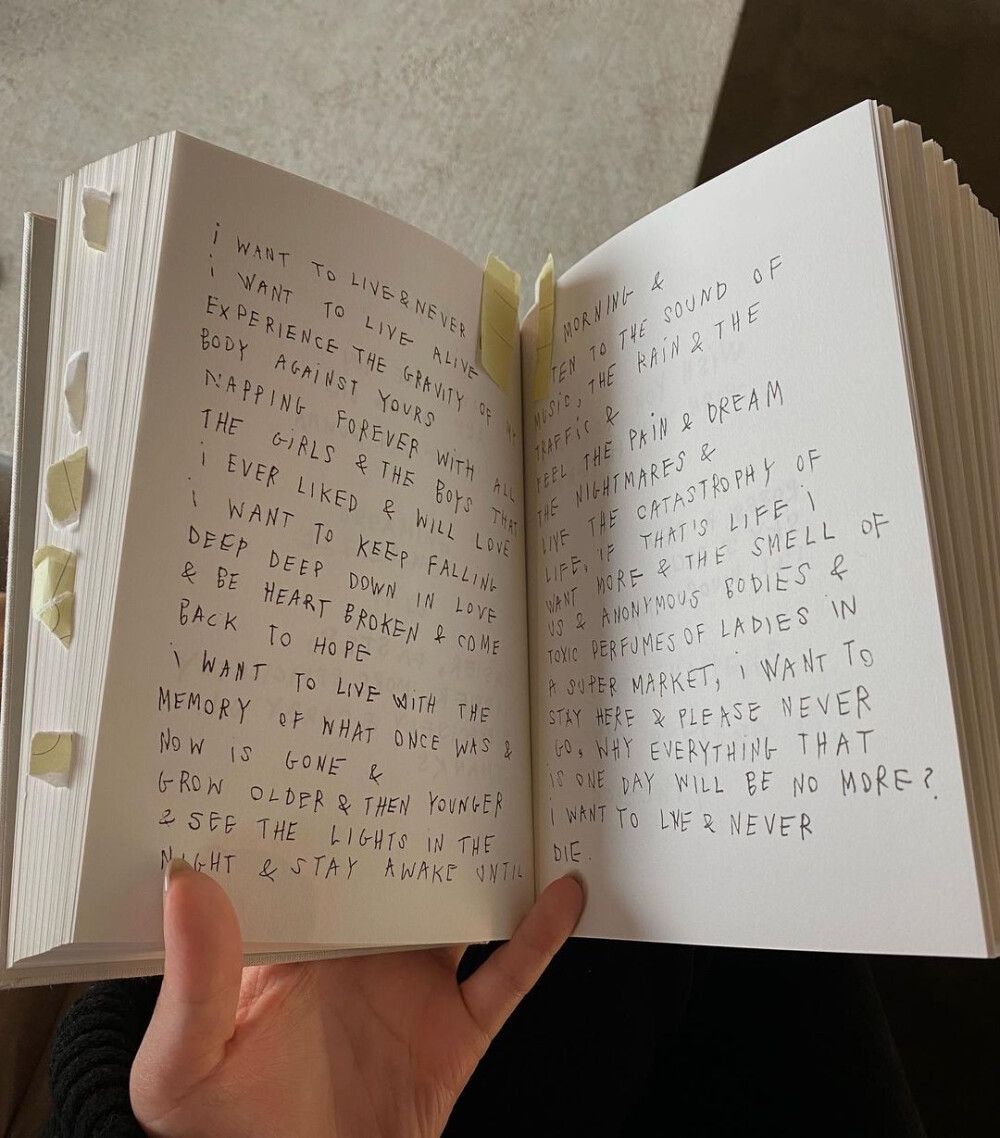 i WANT TO LIVE & NEVER
i WANT TO LIVE ALIVE
EXPERIENCE THE GRAVITY OF MY
BODY AGAINST YOURS
NAPPING FOREVER WITH ALL
THE GiRLS & THE BOYS THAT
i EVER LIKED & WILL LOVE
i WANT TO KEEP FALLING
DEEP DEEP DOWN IN LOVE
& BE HEART BROKEN & COME
BACK TO HOPE
i WANT TO LIVE WiTH THE
MEMORY OF WHAT ONCE WAS &
NOW iS GONE &
GROW OLDER & THEN YOUNGER
& SEE THE LIGHTS iN THE
NiGHT & STAY AWAKE UNTIL
MORNiNG &
TEN TO THE SOUND OF
MUSiC, THE RAiN & THE
TRAFFiC &
FEEL THE PAiN & DREAM
THE NiGHTMARES &
LIVE THE CATASTROPHY OF
LIFE, iF THAT'S LIFE i
WANT MORE & THE SMELL OF
US & ANONYMOUS BODiES &
TOXIC PERFUMES OF LADiES iN
A SUPER MARKET, i WANT TO
STAY HERE & PLEASE NEVER
GO, WHY EVERYTHiNG THAT
iS ONE DAY WiLL BE NO MORE?
i WANT TO LIVE & NEVER
DiE.